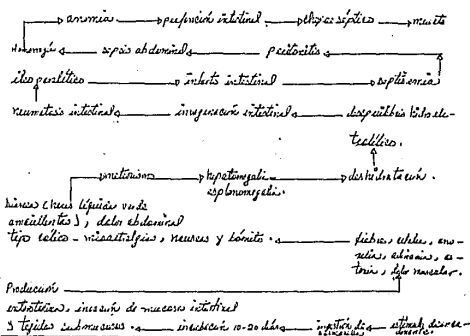 anemia perforación intestinal choque séptico muerte
Hemorragia sepsis abdominal peritonitis
ileo paralítico infarto intestinal septicemia
neumatosis intestinal invaginación intestinal desequilibrio hidroele-
trolítico.
meteorismo hepatomegalia deshidratación.
esplenomegalia.
Diarrea (heces líquidas verde
amarillentas), dolor abdominal
tipo cólico - mesoastralgias, nauseas y vómito. fiebre, cefalea, ano-
rexia, astenia, as-
tenia, dolor muscular.
Producción
enterotoxina, invasión de mucosa intestinal
y tejidos submucosos incubación 10-20 días ingestión de